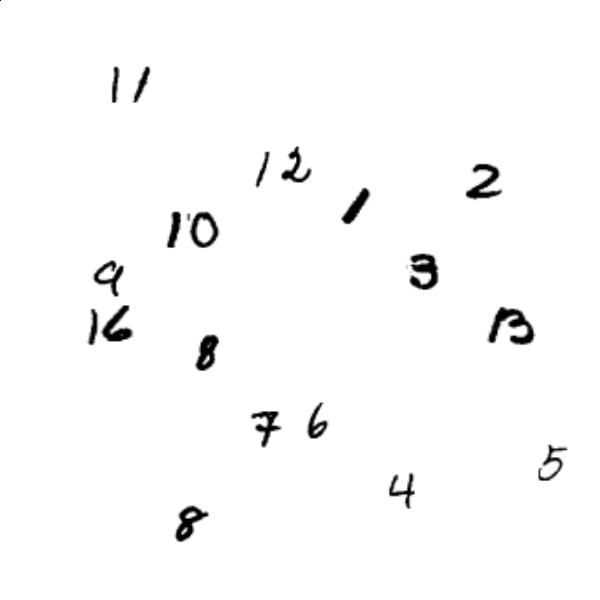 11
12
2
1
10
3
9
16
13
8
7 6
5
4
8